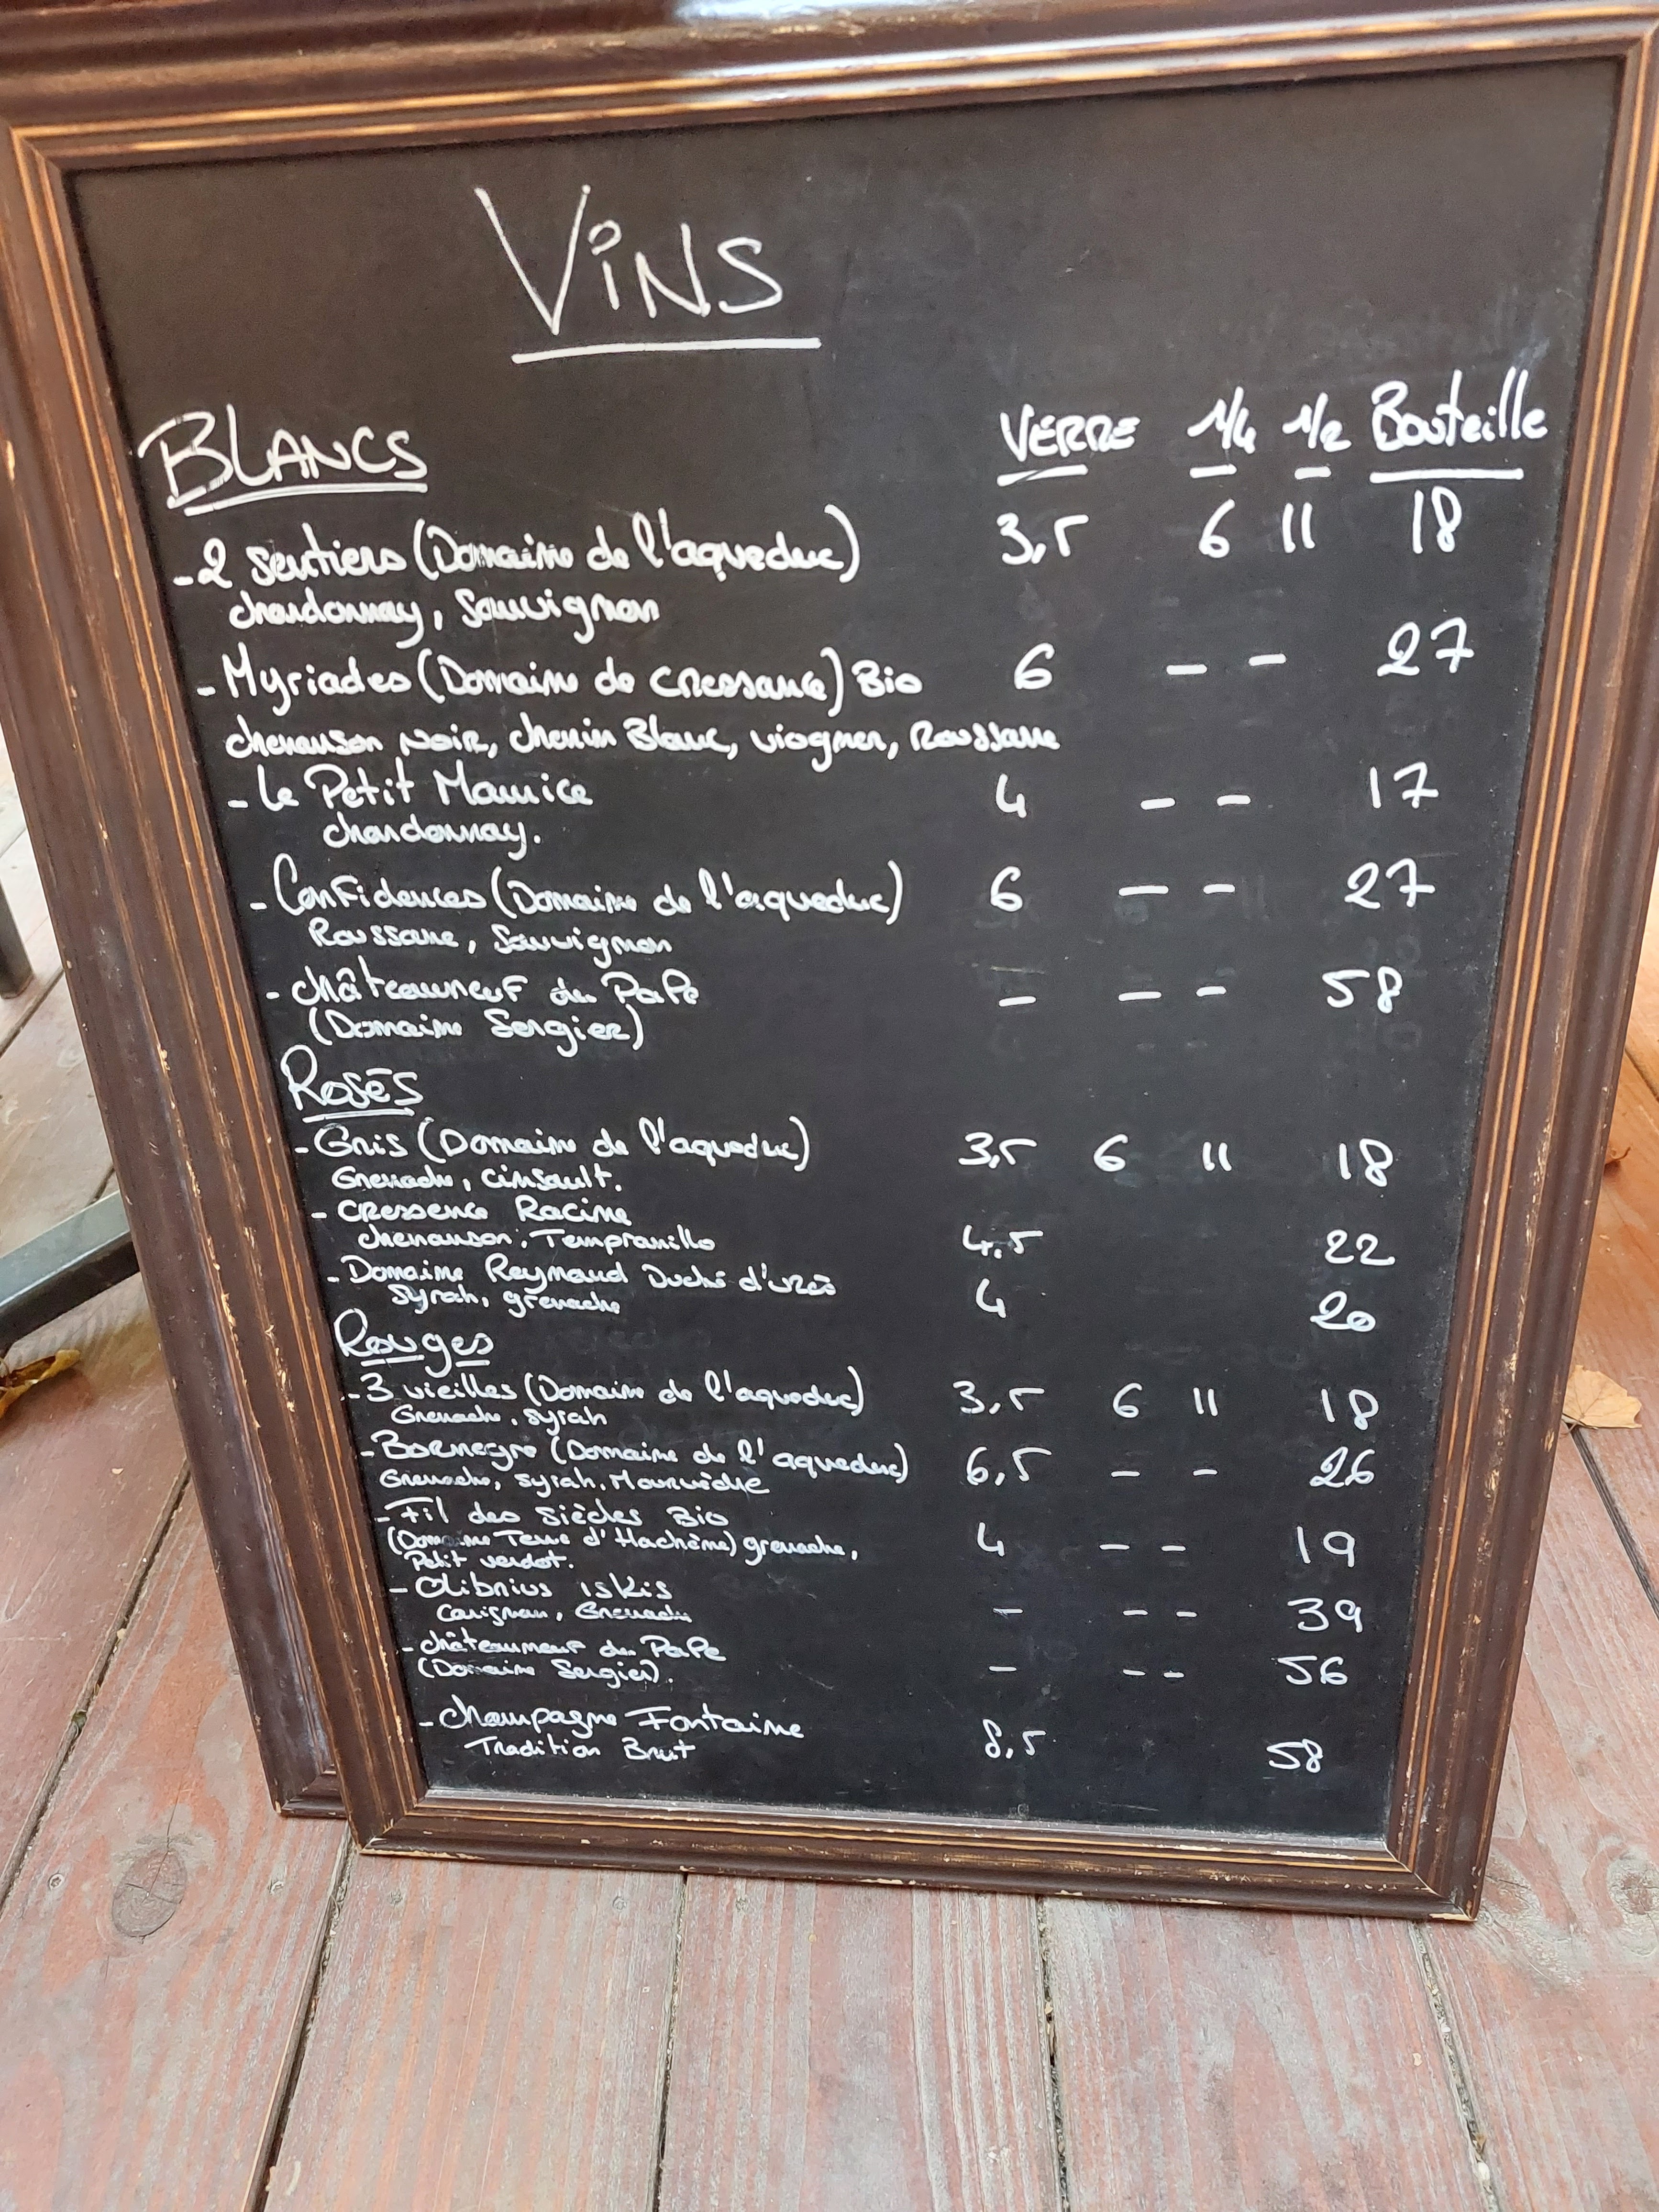 Vins
BLANCS VERRE 1/4 1/2 Bouteille
- 2 sentiers (Domaine de l'aqueduc) 3,5 6 11 18
chardonnay, Sauvignon
- Myriades (Domaine de cressance) Bio 6 - - 27
chenanson noir, chenin Blanc, viogner, Roussane
- Le Petit Maurice 4 - - 17
chardonnay.
- Confidences (Domaine de l'aqueduc) 6 - - 27
Roussane, Sauvignon
- châteauneuf du PaPe - - - 58
(Domaine Sergier)
Rosés
- Gris (Domaine de l'aqueduc) 3,5 6 11 18
Grenache, cinsault.
- cressence Racine
chenanson. Tempranillo 4,5 22
- Domaine Reynaud Duché d'uzès
Syrah, grenache 4 20
Rouges
- 3 vieilles (Domaine de l'aqueduc) 3,5 6 11 18
Grenache, syrah
- Bornegre (Domaine de l'aqueduc) 6,5 - - 26
Grenache, syrah, Mourvèdre
- Fil des siècles Bio
(Domaine Terre d'Hachène) grenache, 4 - - 19
Petit verdot.
- Olibrius iskis
Carignan, Grenache - - - 39
- châteauneuf du PaPe
(Domaine Sergier). - - - 56
- champagne Fontaine
Tradition Brut 8,5 58